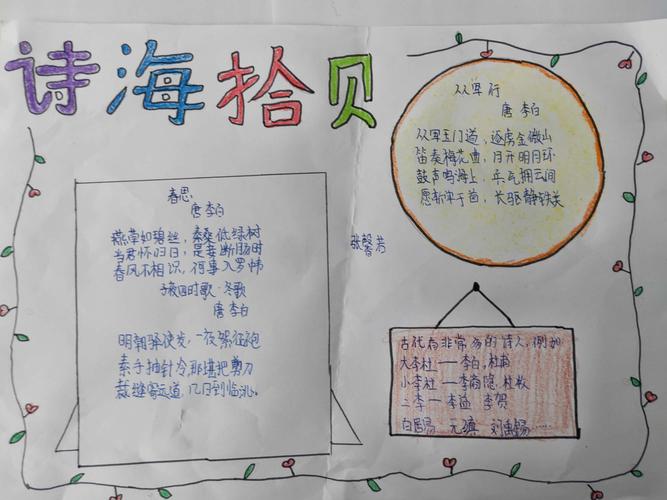 诗海拾贝
春思
唐 李白
燕草如碧丝,秦桑低绿树
当君怀归日,是妾断肠时
春风不相识,何事入罗帏
子夜四时歌·冬歌
唐 李白
明朝驿使发,一夜絮征袍
素手抽针冷,那堪把剪刀
裁缝寄远道,几日到临洮。
张馨芳
从军行
唐 李白
从军玉门道,逐虏金微山
笛奏梅花曲,月开明月环
鼓声鸣海上,兵气拥云间
愿斩单于首,长驱静铁关
古代有非常多的诗人,例如
大李杜——李白,杜甫
小李杜——李商隐,杜牧
二李——李益 李贺
白居易 元稹 刘禹锡……